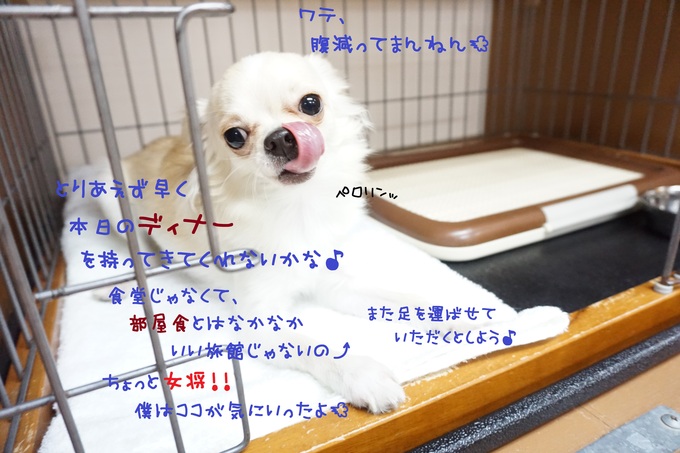 ワテ、
腹減ってまんねん
とりあえず早く
本日のディナー
を持ってきてくれないかな♪
ペロリンッ
食堂じゃなくて、
部屋食とはなかなか
いい旅館じゃないの⤴
ちょっと女将!!
僕はココが気にいったよ
また足を運ばせて
いただくとしよう♪